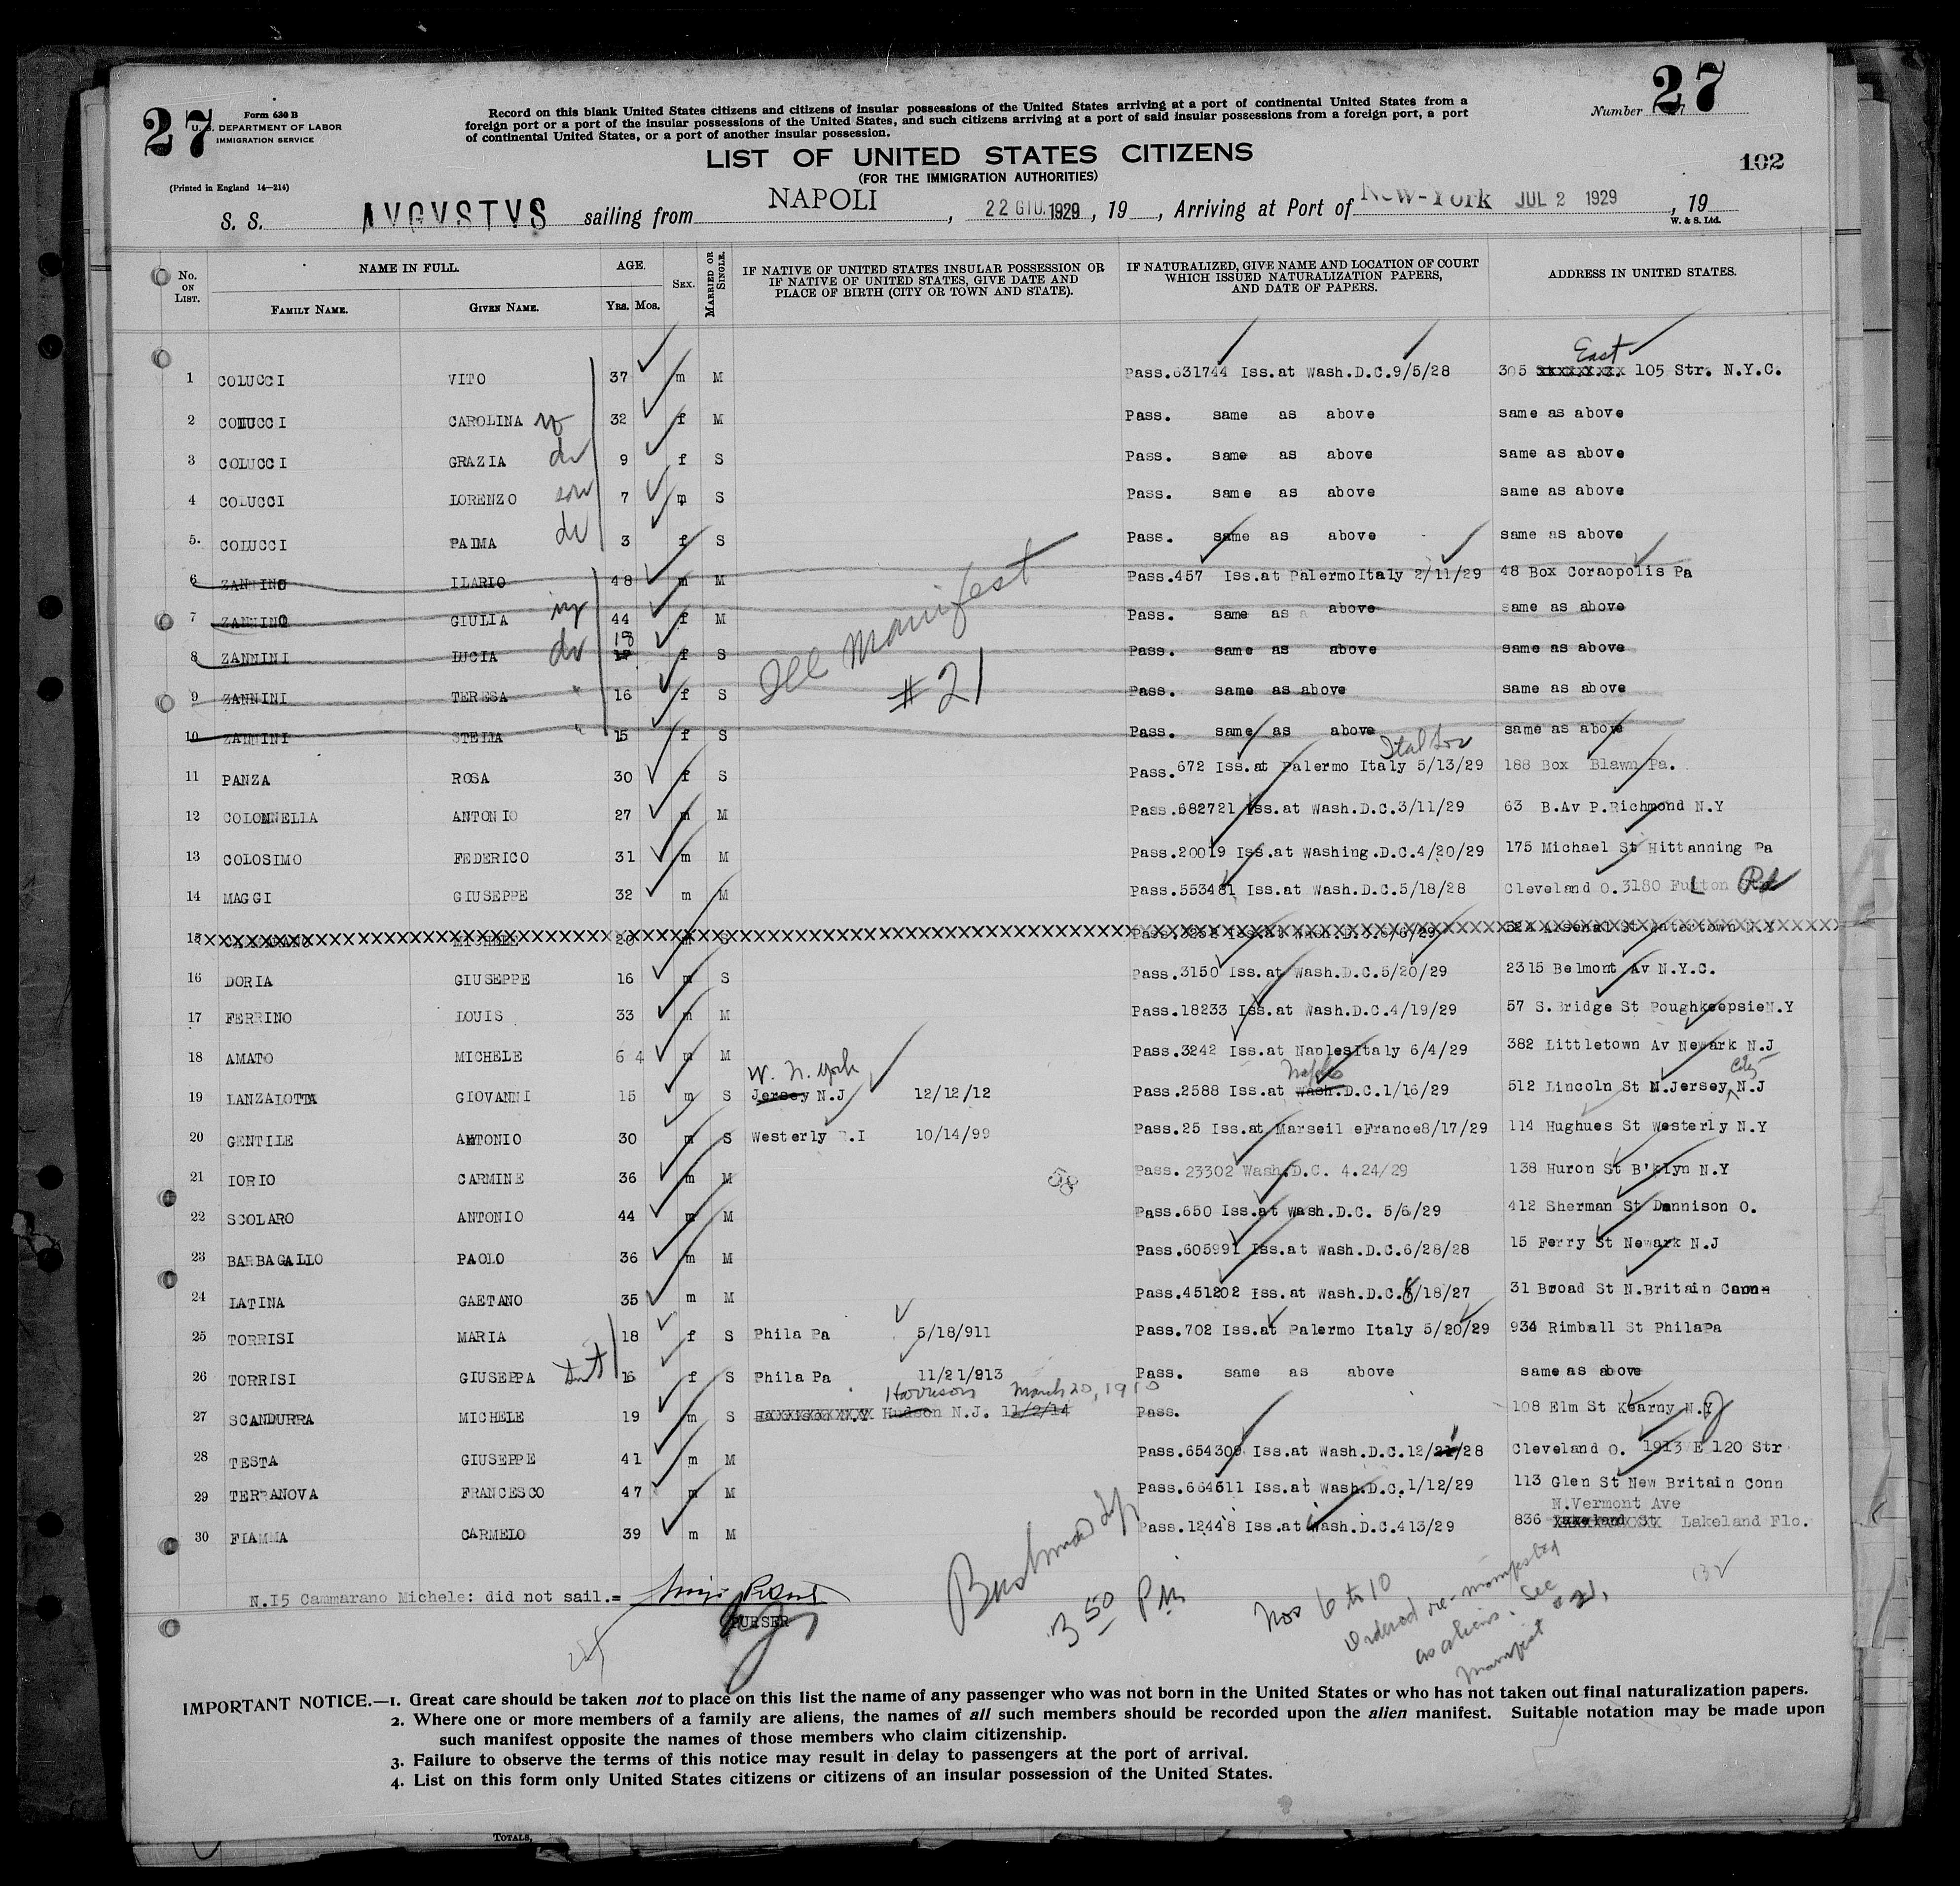 27
Form 630 B
U. S. DEPARTMENT OF LABOR
IMMIGRATION SERVICE
(Printed in England 14—214)
Record on this blank United States citizens and citizens of insular possessions of the United States arriving at a port of continental United States from a
foreign port or a port of the insular possessions of the United States, and such citizens arriving at a port of said insular possessions from a foreign port, a port
of continental United States, or a port of another insular possession.
Number 27
LIST OF UNITED STATES CITIZENS
(FOR THE IMMIGRATION AUTHORITIES)
102
S. S. AVGVSTVS sailing from NAPOLI, 22 GIU. 1929, 19 , Arriving at Port of New-York JUL 2 1929, 19
W. & S. Ltd.
No. ON LIST. NAME IN FULL. FAMILY NAME. GIVEN NAME. AGE. Yrs. Mos. SEX. MARRIED OR SINGLE. IF NATIVE OF UNITED STATES INSULAR POSSESSION OR IF NATIVE OF UNITED STATES, GIVE DATE AND PLACE OF BIRTH (CITY OR TOWN AND STATE). IF NATURALIZED, GIVE NAME AND LOCATION OF COURT WHICH ISSUED NATURALIZATION PAPERS, AND DATE OF PAPERS. ADDRESS IN UNITED STATES.
1 COLUCCI VITO 37 m M Pass.631744 Iss.at Wash.D.C.9/5/28 305 East 105 Str. N.Y.C.
2 COLUCCI CAROLINA 32 f M Pass. same as above same as above
3 COLUCCI GRAZIA 9 f S Pass. same as above same as above
4 COLUCCI LORENZO son 7 m S Pass. same as above same as above
5. COLUCCI PALMA 3 f S Pass. same as above same as above
6 ZANNINO ILARIO 48 m M Pass.457 Iss.at PalermoItaly 2/11/29 48 Box Coraopolis Pa
7 ZANNINO GIULIA 44 f M Pass. same as above same as above
8 ZANNINI LUCIA 18 f S Pass. same as above same as above
9 ZANNINI TERESA " 16 f S Pass. same as above same as above
10 ZANNINI STELLA " 15 f S Pass. same as above same as above
Manifest
#21
11 PANZA ROSA 30 f S Pass.672 Iss.at Palermo Italy 5/13/29 188 Box Blawn Pa.
12 COLONNELLA ANTONIO 27 m M Pass.682721 Iss.at Wash.D.C.3/11/29 63 B.Av P.Richmond N.Y
13 COLOSIMO FEDERICO 31 m M Pass.20019 Iss.at Washing.D.C.4/20/29 175 Michael St Hittanning Pa
14 MAGGI GIUSEPPE 32 m M Pass.553481 Iss.at Wash.D.C.5/18/28 Cleveland O.3180 Fulton Rd
15 MICHELE 20 m S Iss.at Wash.D.C. Arsenal St Watertown N.Y
16 DORIA GIUSEPPE 16 m S Pass.3150 Iss.at Wash.D.C.5/20/29 2315 Belmont Av N.Y.C.
17 FERRINO LOUIS 33 m M Pass.18233 Iss.at Wash.D.C.4/19/29 57 S.Bridge St PoughkeepsieN.Y
18 AMATO MICHELE 64 m M Pass.3242 Iss.at NaplesItaly 6/4/29 382 Littletown Av Newark N.J
19 LANZALOTTA GIOVANNI 15 m S W. N. York Jersey N.J 12/12/12 Pass.2588 Iss.at Naples Wash.D.C.1/16/29 512 Lincoln St N.Jersey City N.J
20 GENTILE ANTONIO 30 m S Westerly R.I 10/14/99 Pass.25 Iss.at Marseil eFrance8/17/29 114 Hughues St Westerly N.Y
21 IORIO CARMINE 36 m M Pass.23302 Wash.D.C. 4.24/29 138 Huron St B'klyn N.Y
22 SCOLARO ANTONIO 44 m M Pass.650 Iss.at Wash.D.C. 5/6/29 412 Sherman St Dennison O.
23 BARBAGALLO PAOLO 36 m M Pass.605991 Iss.at Wash.D.C.6/28/28 15 Ferry St Newark N.J
24 LATINA GAETANO 35 m M Pass.451202 Iss.at Wash.D.C.8/18/27 31 Broad St N.Britain Conn
25 TORRISI MARIA 18 f S Phila Pa 5/18/911 Pass.702 Iss.at Palermo Italy 5/20/29 934 Rimball St PhilaPa
26 TORRISI GIUSEPPA 16 f S Phila Pa 11/21/913 Pass. same as above same as above
27 SCANDURRA MICHELE 19 m S Harrison Hudson N.J. March 20, 1910 11/2/14 Pass. 108 Elm St Kearny N.Y
28 TESTA GIUSEPPE 41 m M Pass.654309 Iss.at Wash.D.C.12/21/28 Cleveland O. 1913 E 120 Str
29 TERRANOVA FRANCESCO 47 m M Pass.664511 Iss.at Wash.D.C.1/12/29 113 Glen St New Britain Conn
30 FIAMMA CARMELO 39 m M Pass.12448 Iss.at Wash.D.C.413/29 836 N.Vermont Ave Lakeland Flo.
N.I5 Cammarano Michele: did not sail.=
PURSER
3 50 PM
Nos 6 to 10
Ordered re-manifested
as aliens. See
Manifest #21,
IMPORTANT NOTICE.—1. Great care should be taken not to place on this list the name of any passenger who was not born in the United States or who has not taken out final naturalization papers.
2. Where one or more members of a family are aliens, the names of all such members should be recorded upon the alien manifest. Suitable notation may be made upon
such manifest opposite the names of those members who claim citizenship.
3. Failure to observe the terms of this notice may result in delay to passengers at the port of arrival.
4. List on this form only United States citizens or citizens of an insular possession of the United States.
TOTALS,